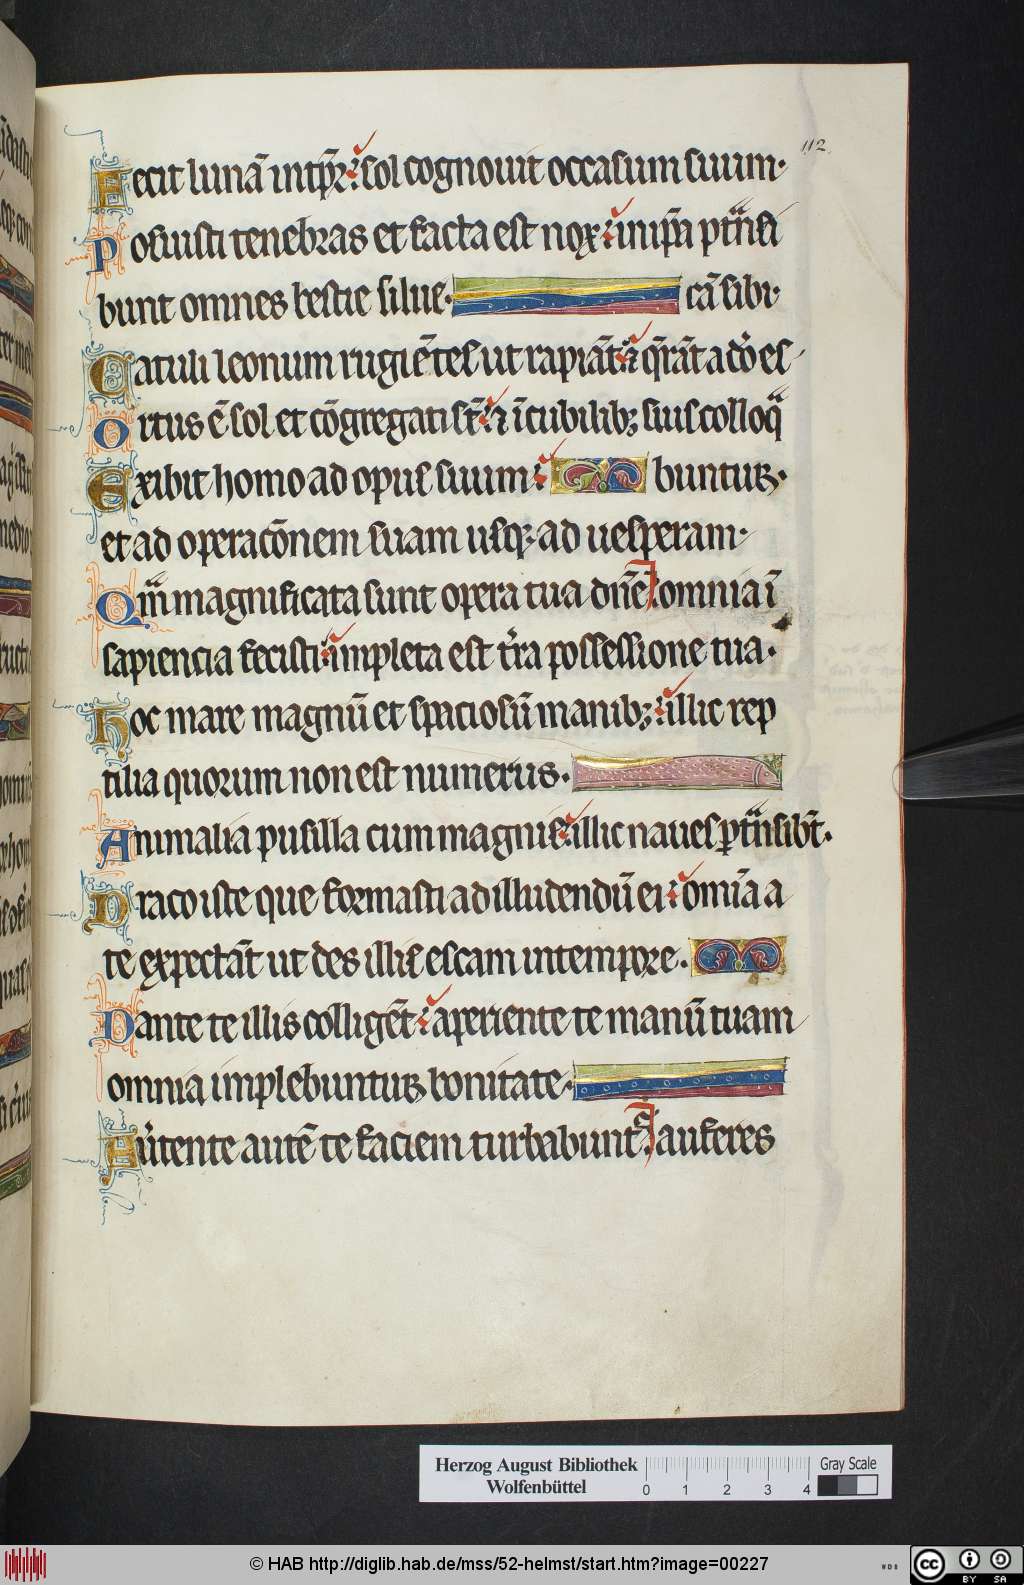 112
Fecit lunā intp̄ꝛa sol cognouit occasum suum·
Posuisti tenebras et facta est nox in ip̄a ptͣnsi
bunt omnes bestie silue· cā sibi·
Catuli leonum rugiētes ut rapiāt ⁊ q̄rāt a dō es
Ortus ē sol et cōgregati st̄ ⁊ ī cubilibꝫ suis colloq̄
Exibit homo ad opus suum buntur·
et ad operacōnem suam usqꝫ ad uesperam·
Qm̄ magnificata sunt opera tua dn̄e omnia ī
sapiencia fecisti impleta est tr̄a possessione tua·
Hoc mare magnū et spaciosū manibꝫ illic rep
tilia quorum non est numerus·
Animalia pusilla cum magnis illic naues ptͣnsibt̄·
Draco iste que formasti ad illudendū ei omīa a
te expectāt ut des illis escam in tempore·
Dante te illis colligēt aperiente te manū tuam
omnia implebuntur bonitate·
Au̾tente autē te faciem turbabunt̾ auferes
Herzog August Bibliothek
Wolfenbüttel
0 1 2 3 4
Gray Scale
© HAB http://diglib.hab.de/mss/52-helmst/start.htm?image=00227
WDB
cc BY SA